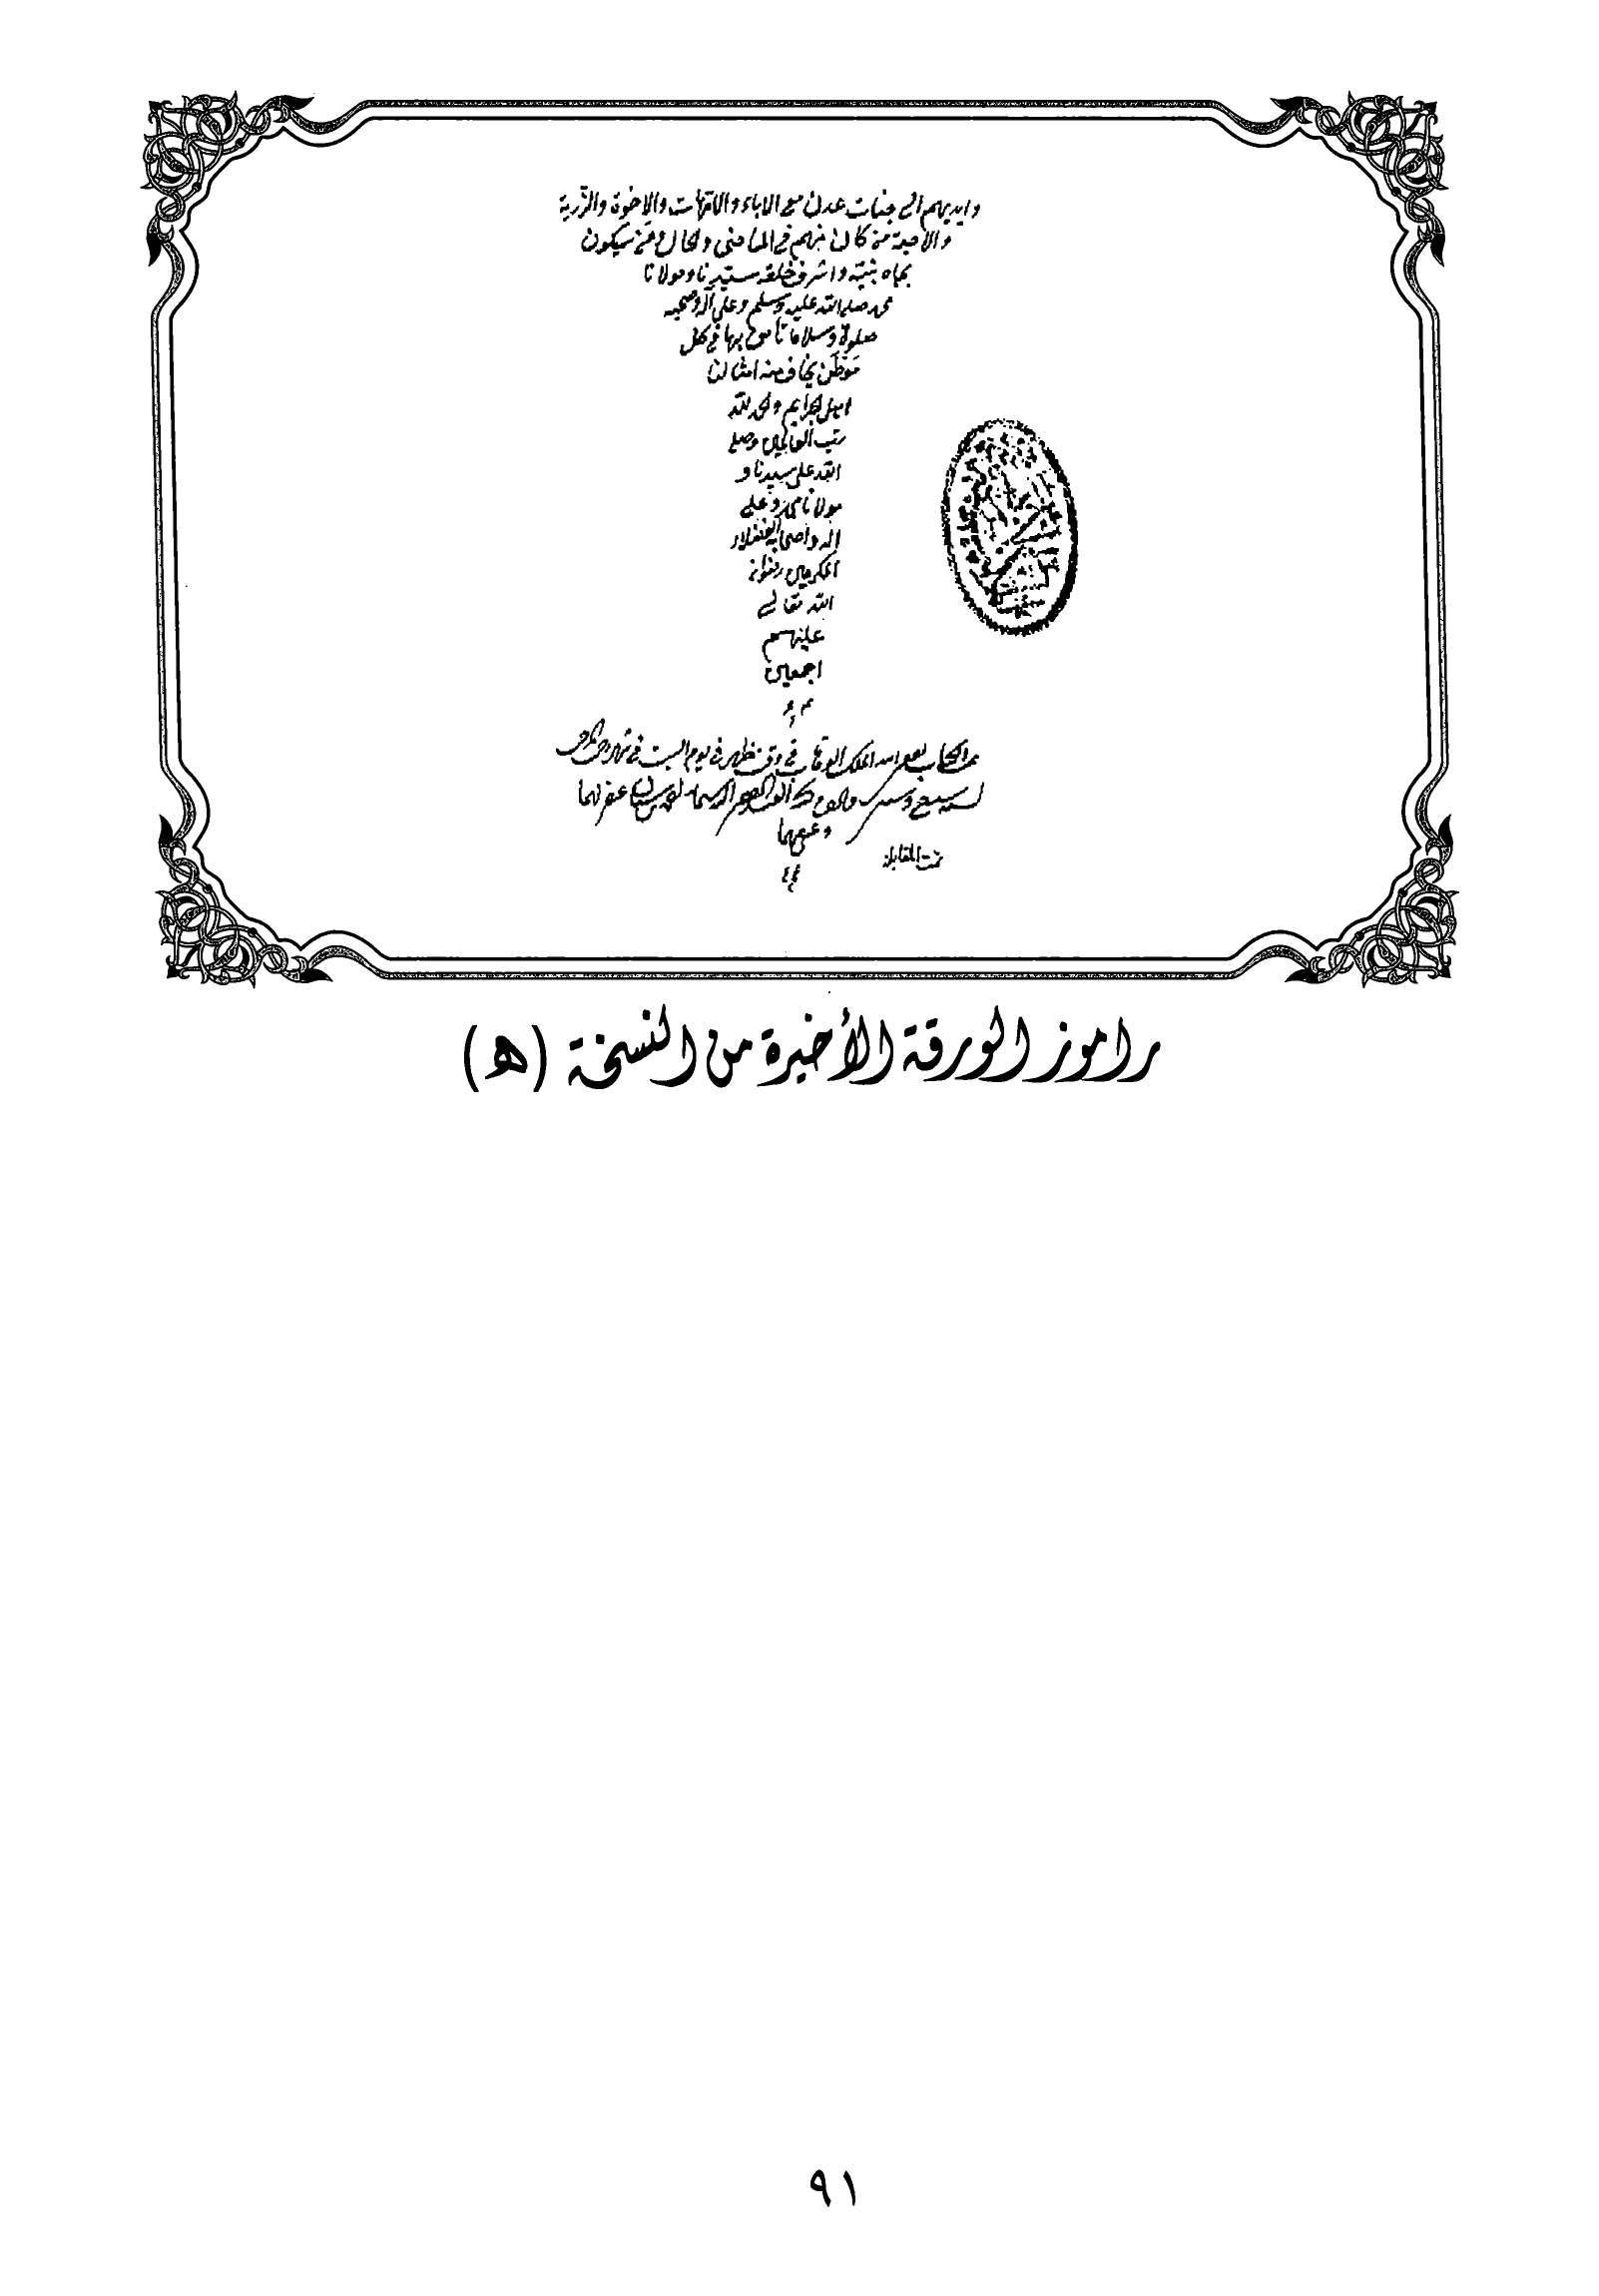 وايديهم الى جنات عدن مع الاباء والامهات والاخوة والذرية
والاحبة من كان منهم في الماضي والحال ومن سيكون
بجاه نبيه واشرف خلقه سيدنا ومولانا
محمد صلى الله عليه وسلم وعلى آله وصحبه
صلوة وسلاما نا بها في كل
موطن يخاف منه امثالنا
اهل الجرايم والحمد لله
رب العالمين وصلى
الله على سيدنا و
مولانا محمد وعلى
اله واصحابه الفضلاء
المكرمين رضوان
الله تعالى
عليهم
اجمعين
الكتاب الله الملك الوهاب في وقت ظهر في يوم السبت في
عفر لهما
وعنهما
تمت المقابلة
راموز الورقة الأخيرة من النسخة (هـ)
٩١